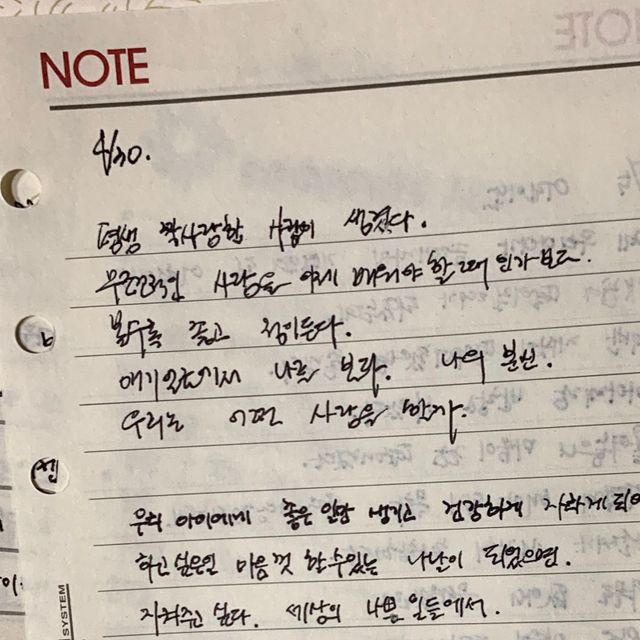 NOTE
4/30.
평생 짝사랑할 사람이 생겼다.
무조건적인 사랑을 이제 배워야 할 때 인가보다.
볼수록 좋고 정이든다.
나를 보다. 나의 분신.
우리는 어떤 사랑을 할까.
우리 아이에게 좋은 일만 생기고 건강하게 자라게 되어
하고싶은일 마음껏 할수있는 나날이 되었으면.
지켜주고 싶다. 세상의 나쁜 일들에서.
SYSTEM